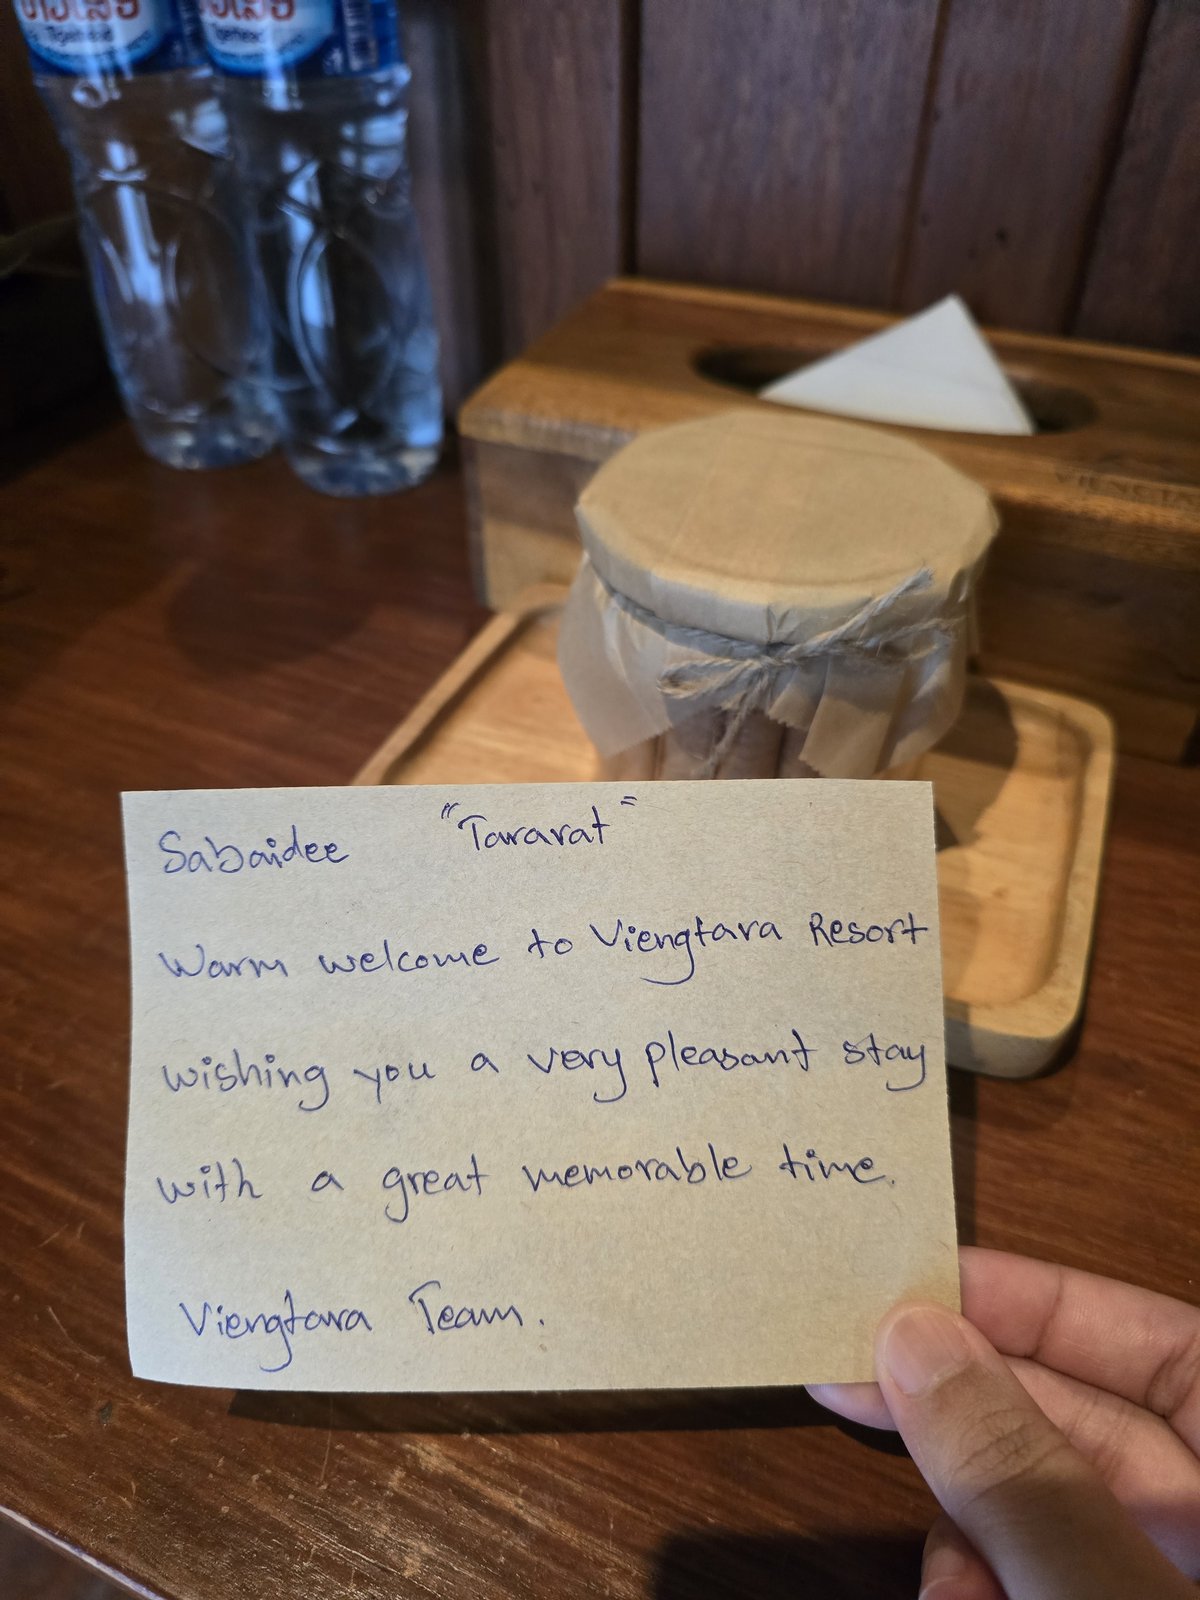 Sabaidee "Tararat"
Warm welcome to Viengtara Resort
wishing you a very pleasant stay
with a great memorable time.
Viengtara Team.